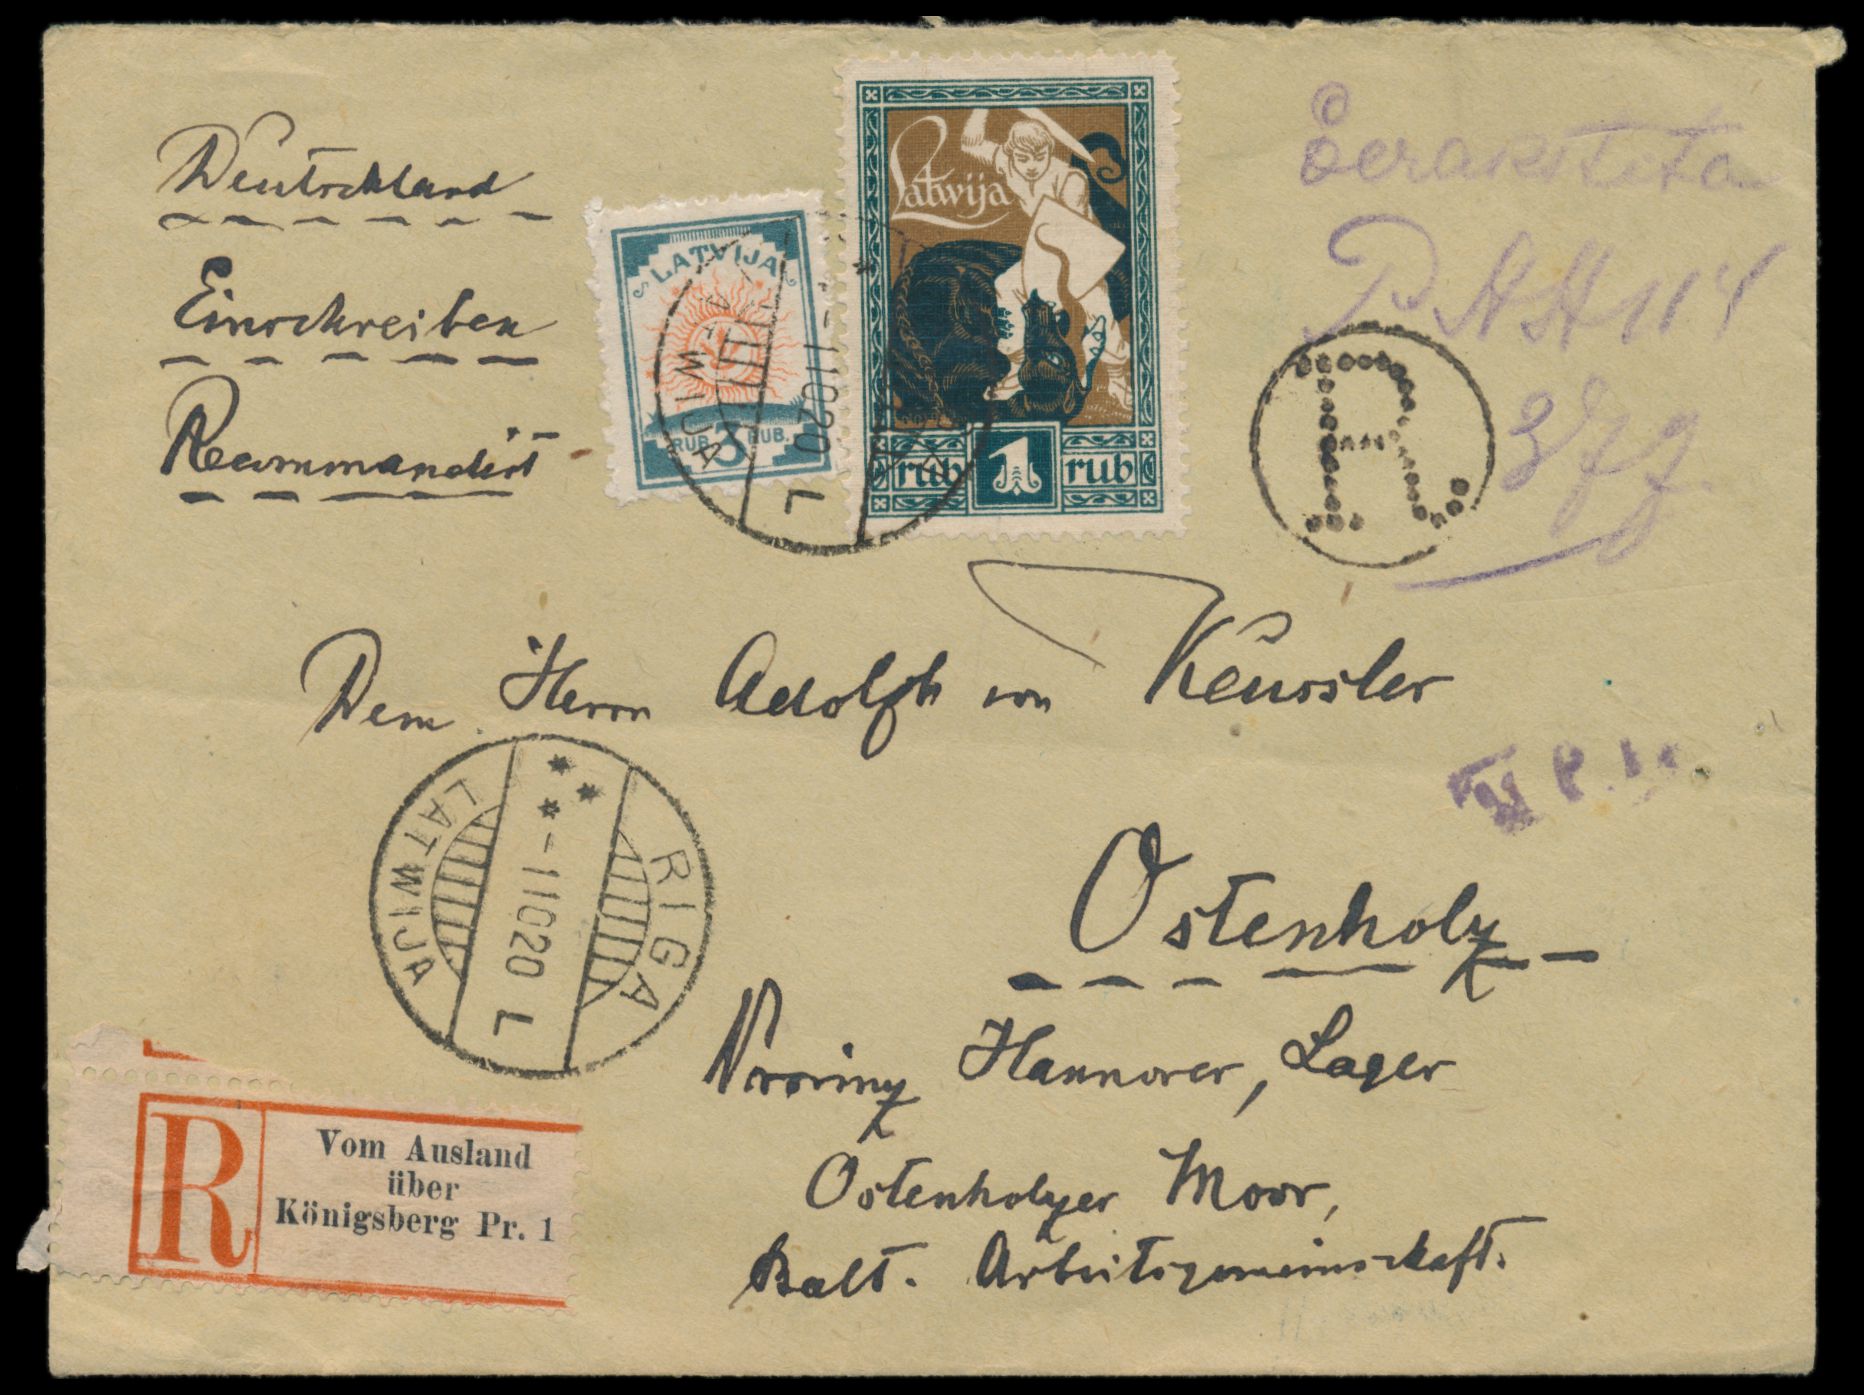 Deutschland
Einschreiben
Recommandirt
LATVIJA
RUB. 3 RUB.
Latwija
rub 1 rub
-11020
L
LATWIJA
Eerakstita
R
Dem Herrn Adolph von Keussler
RIGA
LATWIJA
-11020
L
Ostenholz
Provinz Hannover, Lager
Ostenholzer Moor,
Balt. Arbeitsgemeinschaft.
R
Vom Ausland
über
Königsberg Pr. 1